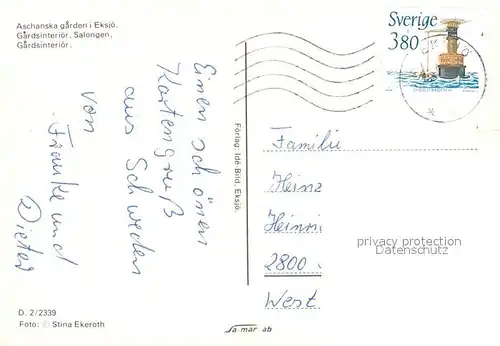 Aschanska gården i Eksjö.
Gårdsinteriör, Salongen,
Gårdsinteriör.
Einen schönen
Kartengruß
aus Schweden
von
Frauke und
Dieter
D. 2/2339
Foto: © Stina Ekeroth
Förlag: Idé Bild, Eksjö.
sa-mar ab
Sverige
380
EKSJÖ
Familie
Heinz
Heinri
2800
West
privacy protection
Datenschutz